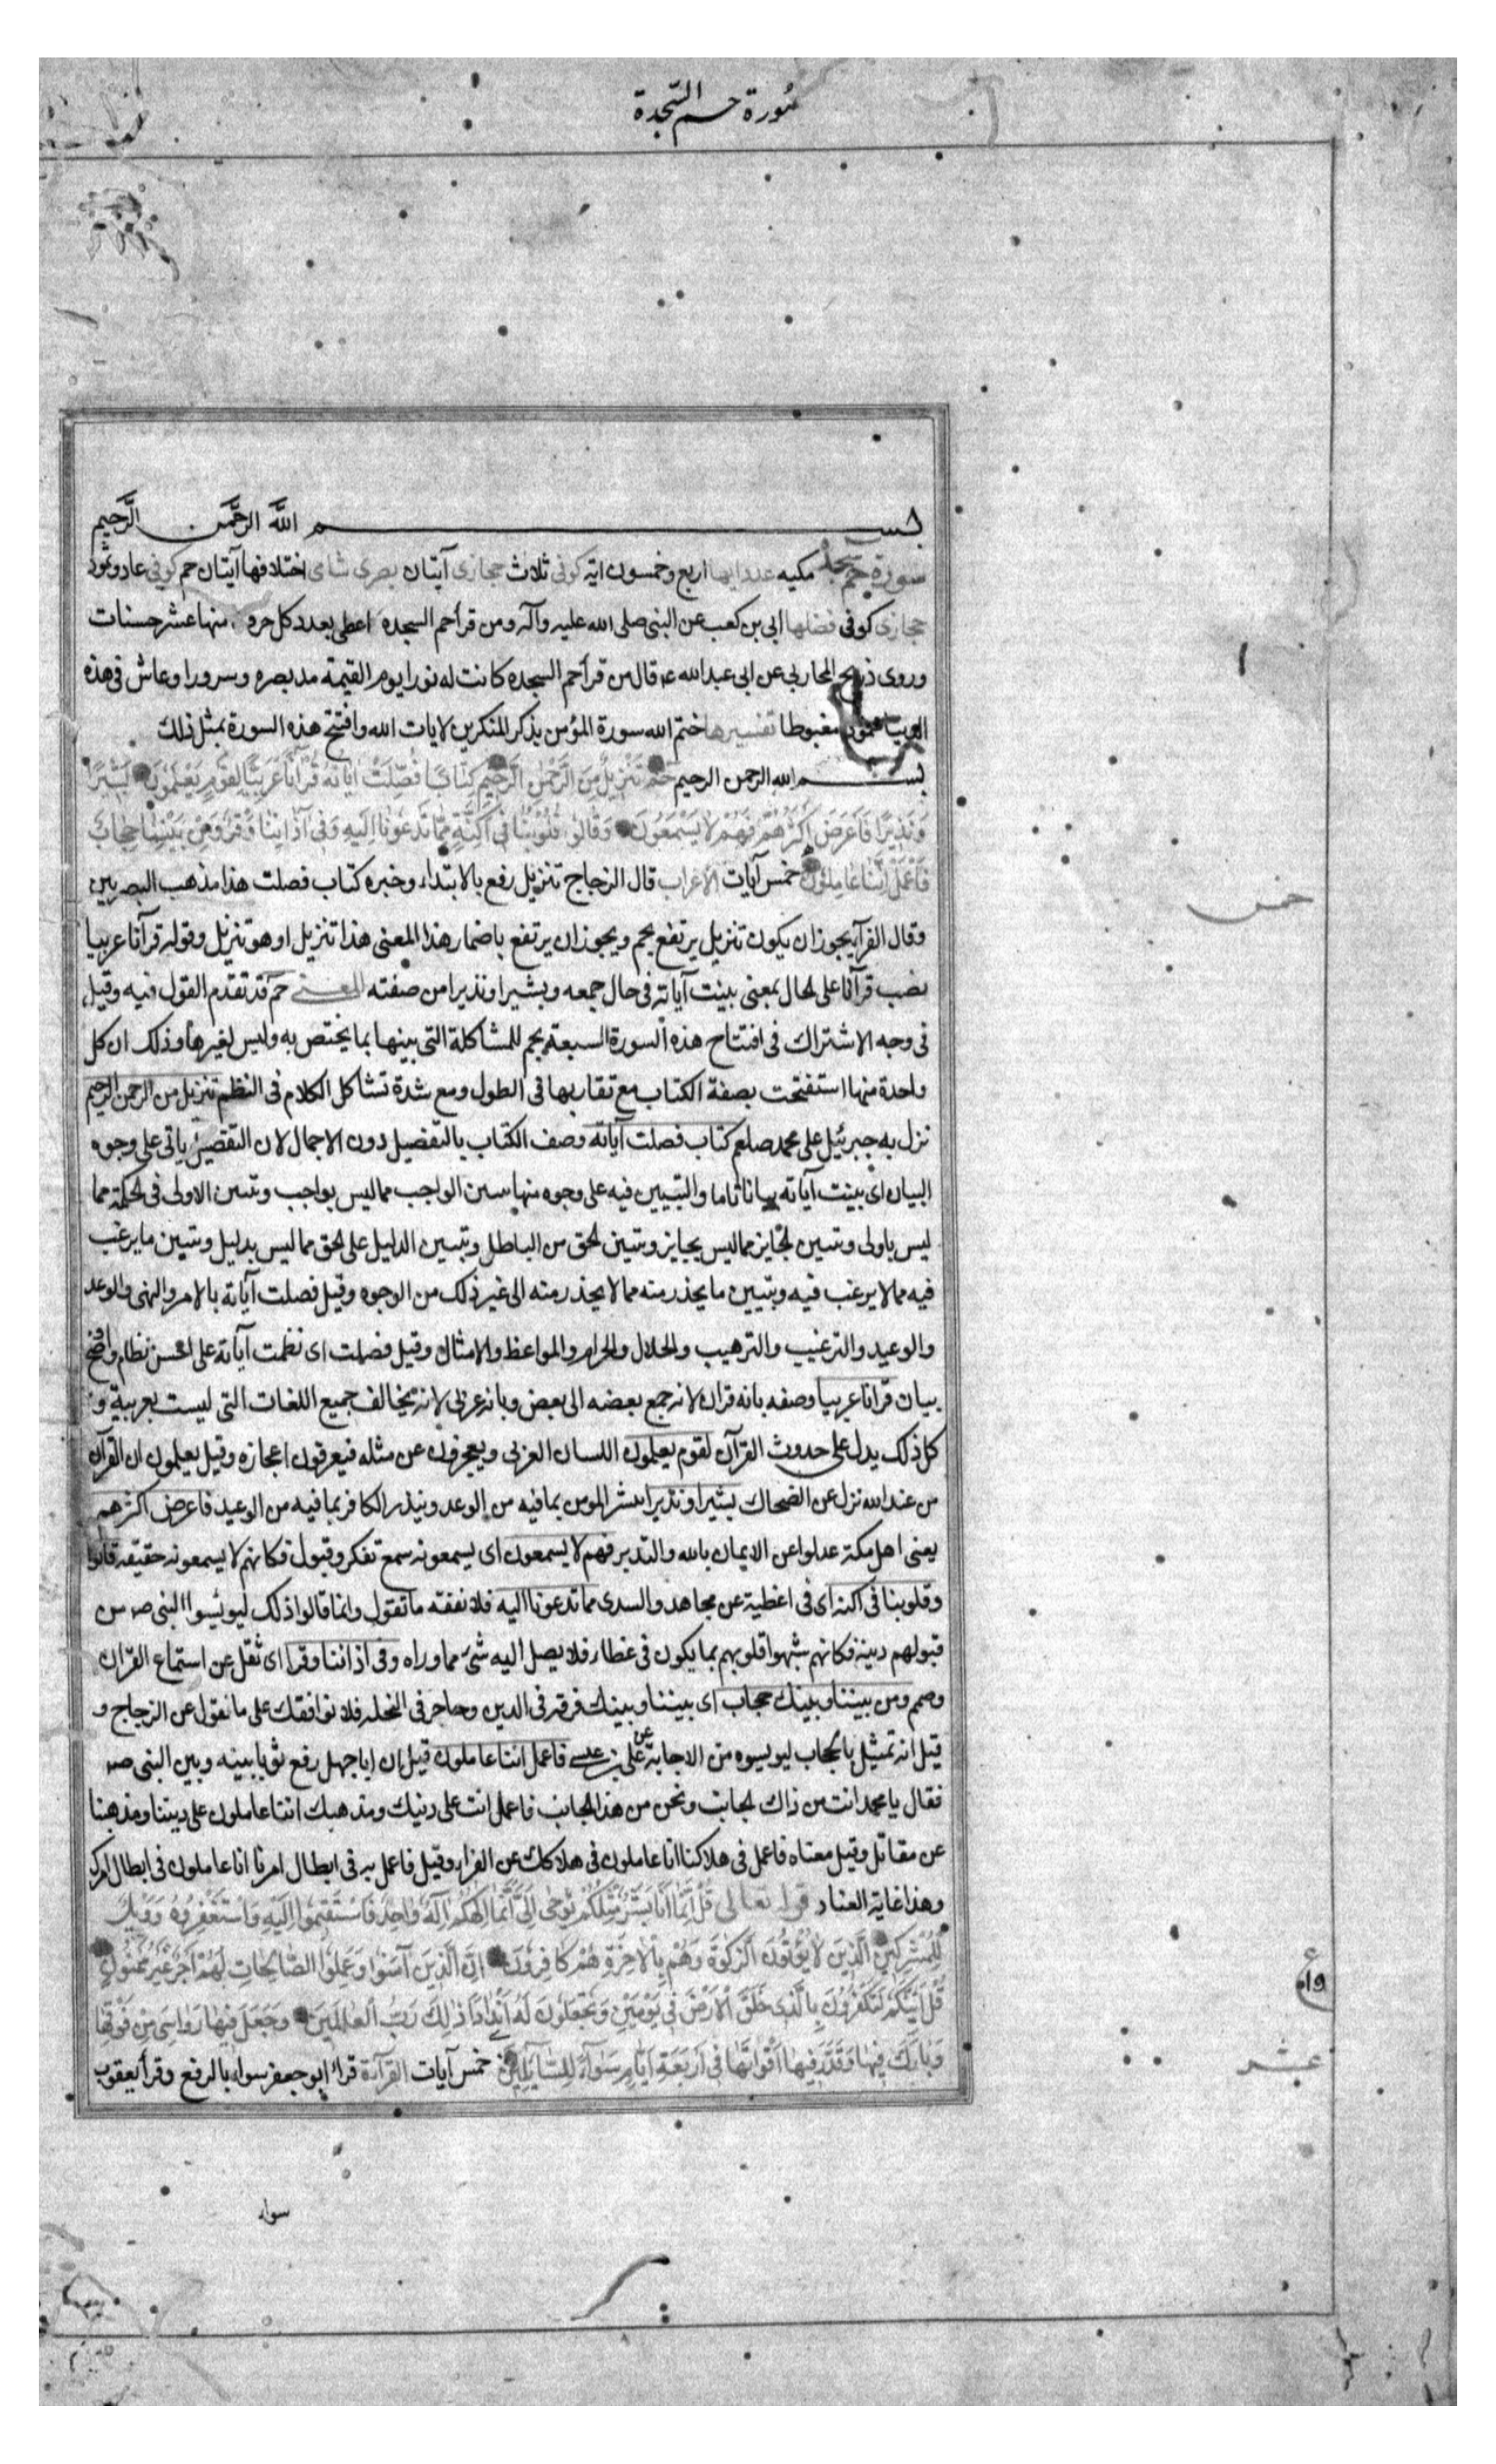 سورة حم السجدة
بسم الله الرحمن الرحيم
سورة حم سجدة مكيه عدد ايها اربع وخمسون اية كوفى ثلاث حجازى آيتان بصرى شامى اختلافها آيتان حم كوفى عاد وثمود
حجازى كوفى فضلها ابى بن كعب عن النبى صلى الله عليه وآله ومن قرأ حم السجدة اعطى بعدد كل حرف منها عشر حسنات
وروى ذريح المحاربى عن ابى عبد الله ع قال من قرأ حم السجدة كانت له نورا يوم القيمة مد بصره وسرورا وعاش فى هذه
مغبوطا تفسيرها ختم الله سورة المؤمن بذكر المنكرين لايات الله وافتتح هذه السورة بمثل ذلك
بسم الله الرحمن الرحيم حم تَنْزِيلٌ مِنَ الرَّحْمٰنِ الرَّحِيمِ كِتَابٌ فُصِّلَتْ اٰيَاتُهُ قُرْآنًا عَرَبِيًّا لِقَوْمٍ يَعْلَمُونَ بَشِيرًا
وَنَذِيرًا فَاَعْرَضَ اَكْثَرُهُمْ فَهُمْ لَا يَسْمَعُونَ وَقَالُوا قُلُوبُنَا فِى اَكِنَّةٍ مِمَّا تَدْعُونَا اِلَيْهِ وَفِى آذَانِنَا وَقْرٌ وَمِنْ بَيْنِنَا حِجَابٌ
فَاعْمَلْ اِنَّنَا عَامِلُونَ خمس آيات الاعراب قال الزجاج تنزيل رفع بالابتداء وخبره كتاب فصلت هذا مذهب البصريين
وقال الفرآ يجوز ان يكون تنزيل يرتفع بحم ويجوز ان يرتفع باضمار هذا المعنى هذا تنزيل او هو تنزيل وقوله قرآنا عربيا
نصب قرآنا على الحال بمعنى بينت آياته فى حال جمعه وبشيرا ونذيرا من صفته المعنى حم قد تقدم القول فيه وقيل
فى وجه الاشتراك فى افتتاح هذه السورة السبعة بحم للمشاكلة التى بينها بما يختص به وليس لغيرها وذلك ان كل
واحدة منها استفتحت بصفة الكتاب مع تقاربها فى الطول ومع شدة تشاكل الكلام فى النظم تنزيل من الرحمن الرحيم
نزل به جبرئيل على محمد صلعم كتاب فصلت آياته وصف الكتاب بالتفصيل دون الاجمال لان التفصيل ياتى على وجوه
البيان اى بينت آياته بيانا تاما والتبيين فيه على وجوه منها تبيين الواجب مما ليس بواجب وتبيين الاولى فى الحكمة مما
ليس باولى وتبيين الجايز مما ليس بجايز وتبيين الحق من الباطل وتبيين الدليل على الحق مما ليس بدليل وتبيين ما يرغب
فيه مما لا يرغب فيه وتبيين ما يحذر منه مما لا يحذر منه الى غير ذلك من الوجوه وقيل فصلت آياته بالامر والنهى والوعد
والوعيد والترغيب والترهيب والحلال والحرام والمواعظ والامثال وقيل فصلت اى نظمت آياته على احسن نظام واوضح
بيان قرآنا عربيا وصفه بانه قران لانه جمع بعضه الى بعض وبانه عربى لانه يخالف جميع اللغات التى ليست بعربية و
كل ذلك يدل على حدوث القرآن لقوم يعلمون اللسان العربى ويعجزون عن مثله فيعرفون اعجازه وقيل يعلمون ان القرآن
من عند الله نزل عن الضحاك بشيرا ونذيرا يبشر المومن بما فيه من الوعد وينذر الكافر بما فيه من الوعيد فاعرض اكثرهم
يعنى اهل مكة عدلوا عن الايمان بالله والتدبر فهم لا يسمعون اى يسمعونه سمع تفكر وقبول فكانهم لا يسمعونه حقيقة قالوا
وقلوبنا فى اكنة اى فى اغطية عن مجاهد والسدى مما تدعونا اليه فلا نفقه ما تقول وانما قالوا ذلك ليويسوا النبى ص من
قبولهم دينه فكانهم شبهوا قلوبهم بما يكون فى غطاء فلا يصل اليه شئ مما وراه وفى اذاننا وقرا اى ثقل عن استماع القران
وصمم ومن بيننا وبينك حجاب اى بيننا وبينك فرقة فى الدين وحاجز فى النحلة فلا نوافقك على ما نقول عن الزجاج و
قيل انه تمثيل بالحجاب ليويسوه من الاجابة عن على بن عيسى فاعمل اننا عاملون قيل ان ابا جهل رفع ثوبا بينه وبين النبى ص
فقال يا محمد انت من ذاك الجانب ونحن من هذا الجانب فاعمل انت على دينك ومذهبك اننا عاملون على ديننا ومذهبنا
عن مقاتل وقيل معناه فاعمل فى هلاكنا انا عاملون فى هلاكك عن الفراء وقيل فاعمل به فى ابطال امرنا انا عاملون فى ابطال امرك
وهذا غاية العناد قوله تعالى قُلْ اِنَّمَا اَنَا بَشَرٌ مِثْلُكُمْ يُوحٰى اِلَىَّ اَنَّمَا اِلٰهُكُمْ اِلٰهٌ وَاحِدٌ فَاسْتَقِيمُوا اِلَيْهِ وَاسْتَغْفِرُوهُ وَوَيْلٌ
لِلْمُشْرِكِينَ الَّذِينَ لَا يُؤْتُونَ الزَّكٰوةَ وَهُمْ بِالْاٰخِرَةِ هُمْ كَافِرُونَ اِنَّ الَّذِينَ آمَنُوا وَعَمِلُوا الصَّالِحَاتِ لَهُمْ اَجْرٌ غَيْرُ مَمْنُونٍ
قُلْ اَئِنَّكُمْ لَتَكْفُرُونَ بِالَّذِى خَلَقَ الْاَرْضَ فِى يَوْمَيْنِ وَتَجْعَلُونَ لَهُ اَنْدَادًا ذٰلِكَ رَبُّ الْعَالَمِينَ وَجَعَلَ فِيهَا رَوَاسِىَ مِنْ فَوْقِهَا
وَبَارَكَ فِيهَا وَقَدَّرَ فِيهَا اَقْوَاتَهَا فِى اَرْبَعَةِ اَيَّامٍ سَوَاءً لِلسَّائِلِينَ خمس آيات القرآءة قرأ ابو جعفر سواء بالرفع وقرأ يعقوب
خمس
ع
١٩
عشر
سواء